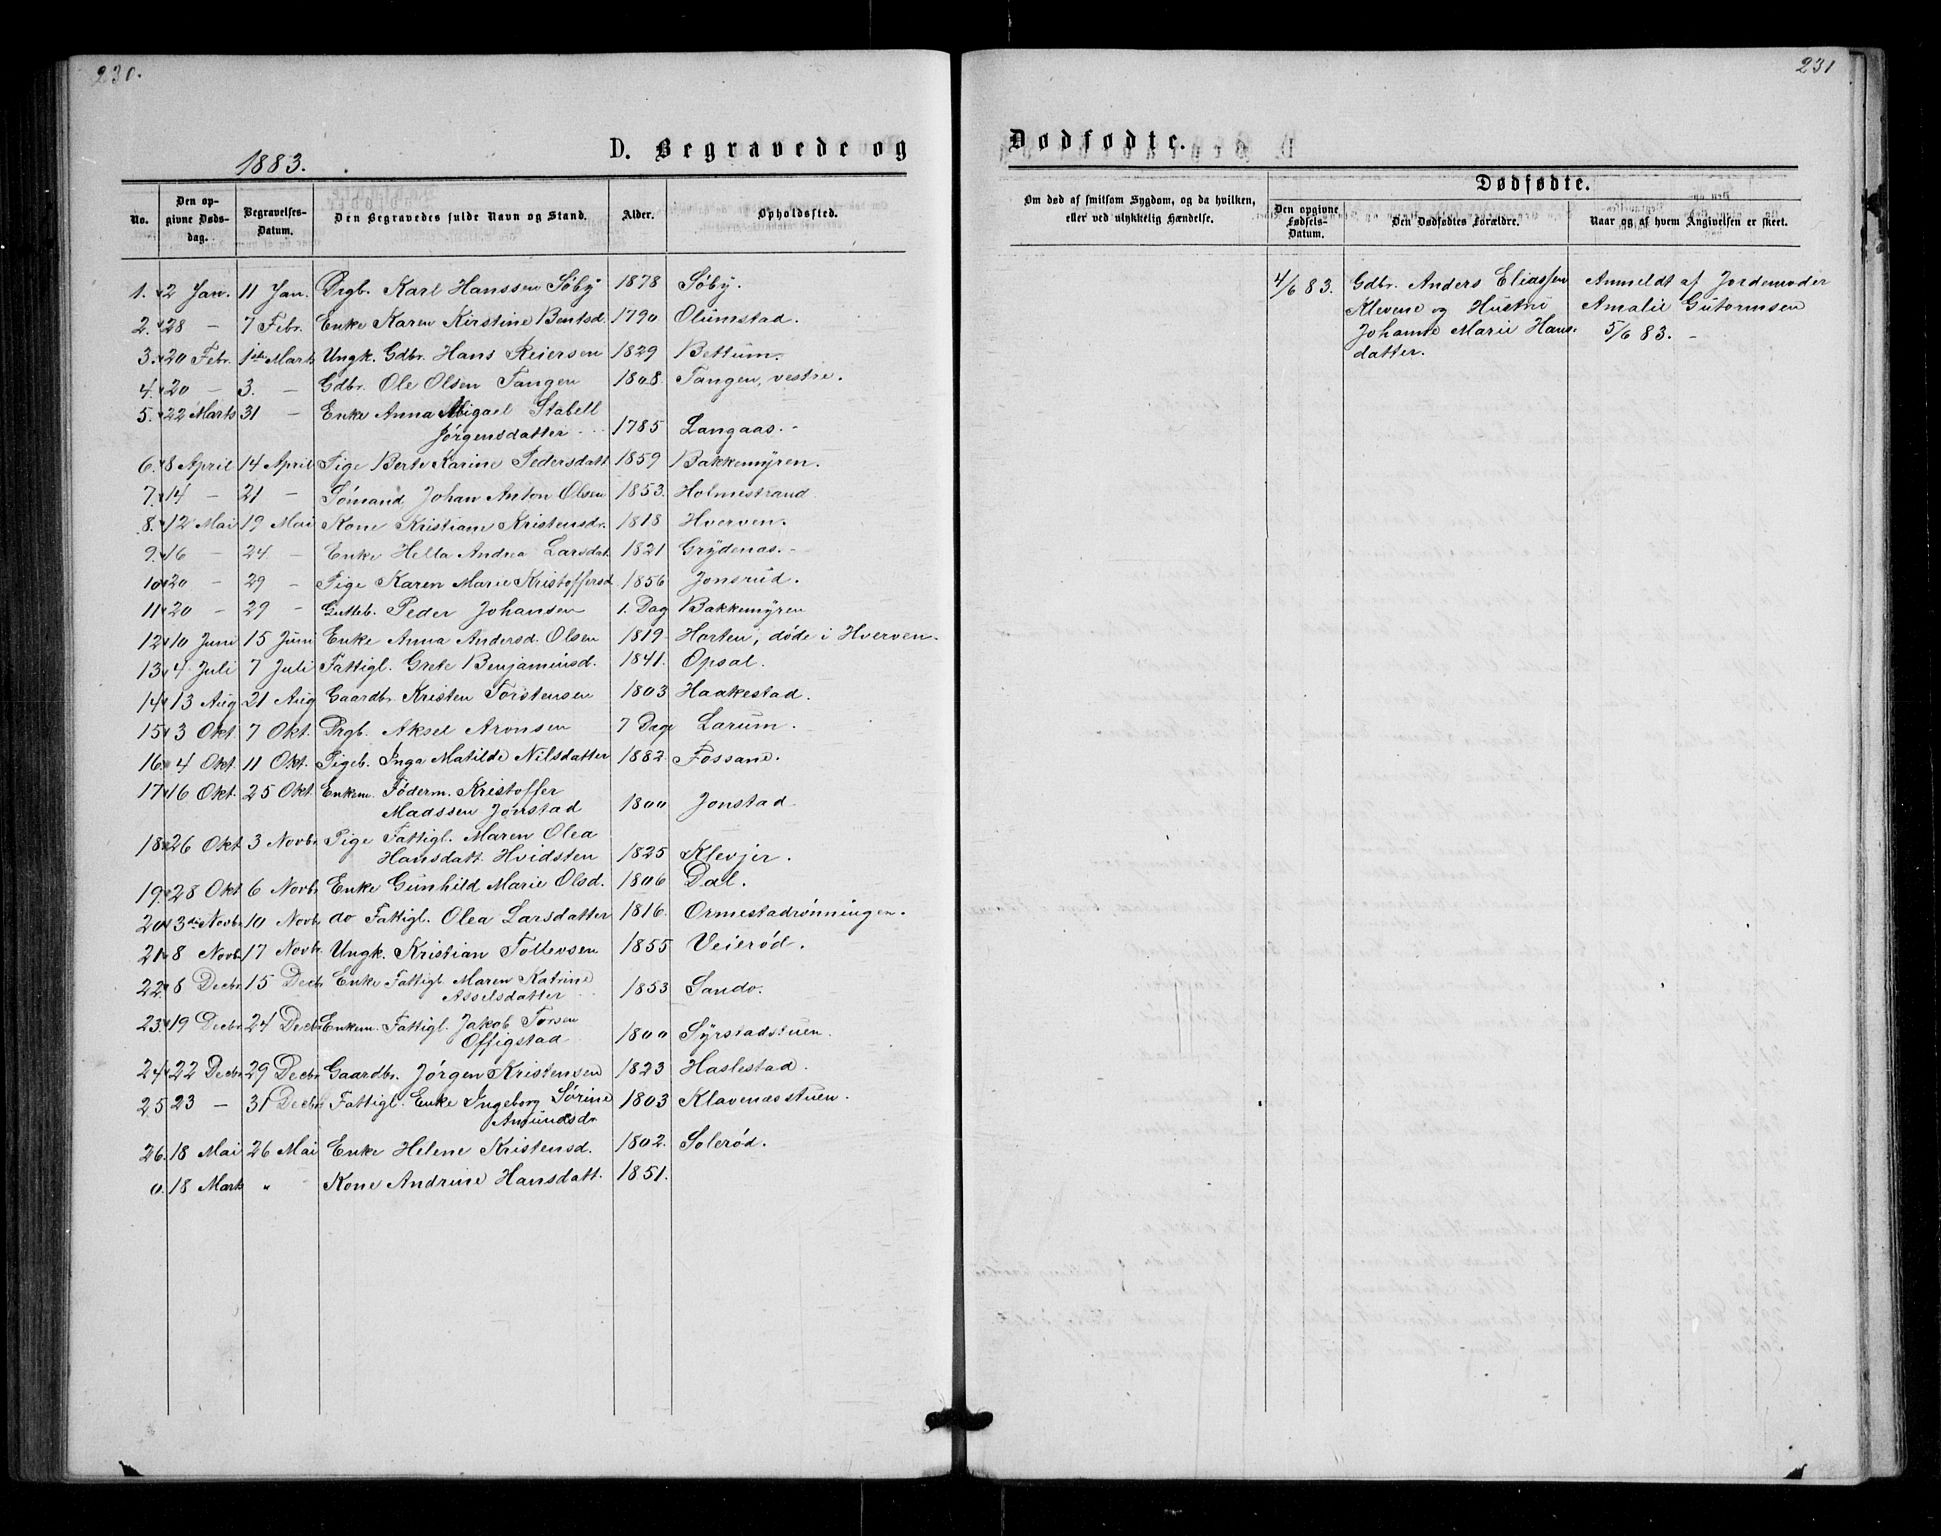 230.
1883.
D. Begravede og
No. Den opgivne Dødsdag. Begravelses-Datum. Den Begravedes fulde Navn og Stand. Alder. Opholdssted.
1. 2 Jan. 11 Jan. Drgb. Karl Hanssen Söby 1878 Söby.
2. 28 — 7 Febr. Enke Karen Kirstine Bentsd. 1790 Olumstad.
3. 20 Febr. 1ste Marts Ungk. Gdbr. Hans Reiersen 1829 Bettum.
4. 20 — 3. — Gdbr. Ole Olsen Tangen 1808. Tangen, vestre.
5. 22 Marts 31 — Enke Anna Abigael Stabell
Jörgensdatter 1785 Langaas.
6. 8 April 14 April Pige Berte Karine Pedersdatt 1859 Bakkemyren.
7. 14 — 21 — Sömand Johan Anton Olsen 1853. Holmestrand
8. 12 Mai 19 Mai Kone Kristiane Kristensdr. 1818 Hverven.
9. 16 — 24 — Enke Helta Andrea Larsdat 1821 Grydenas.
10 20 — 29 — Pige Karen Marie Kristoffersd. 1856 Jonsrud.
11 20 — 29 — Gutteb. Peder Johansen 1. Dag Bakkemyren
12 10 Juni 15 Juni Enke Anna Andersd. Olsen 1819. Horten, døde i Hverven.
13 4 Juli 7 Juli Fattigl. Grete Benjaminsd. 1841. Opsal.
14 13 Aug 21 Aug Gaardbr. Kristen Torstensen 1803 Haakestad.
15 3 Okt. 7 Okt. Drgb. Aksel Aronsen 7 Dage Larum.
16 4 Okt. 11 Okt. Pigeb. Inga Matilde Nilsdatter 1882. Fossane.
17 16 Okt. 25 Okt. Enkem. Föderm. Kristoffer
Madssen Jonstad 1800 Jonstad
18 26 Okt. 3 Novbr. Pige Fattigl. Maren Olea
Hansdatt. Hvidsten 1825 Klevjer.
19. 28 Okt 6 Novbr. Enke Gunhild Marie Olsd. 1806 Dal.
20 3die Novbr 10 Novbr. do Fattigl. Olea Larsdatter 1816. Ormestadrønningen.
21 8 Novbr 17 Novbr. Ungk. Kristian Tollevsen 1855 Veierød.
22 6 Decbr 15 Decbr. Enke Fattigl. Maren Katrine
Asselsdatter 1853 Sando.
23. 19 Decbr. 24 Decbr Enkem. Fattigl. Jakob Torsen
Offigstad 1800 Syrstadstuen.
24 22 Decbr. 29 Decbr. Gaardbr. Jörgen Kristensen 1823 Haslestad.
25 23 — 31 Decbr Fattigl. Enke Ingeborg Sörine
Amundsdr 1803 Klavenæsstuen.
26. 18 Mai 26 Mai Enke Helene Kristensd. 1802. Solerød.
0. 18 Marts " Kone Andrine Hansdatt. 1851.
231
Dødfødte.
Dødfødte.
Om død af smitsom Sygdom, og da hvilken, eller ved ulykkelig Hændelse. Den opgivne Fødsels-Datum. Den Dødfødtes Forældre. Naar og af hvem Angivelsen er skeet.
4/6 83. Gdbr. Anders Eliassen Anmeldt af Jordemoder
Klevene og Hustru Amalie Gutormsen
Johanne Marie Hans- 5/6 83. —
datter.